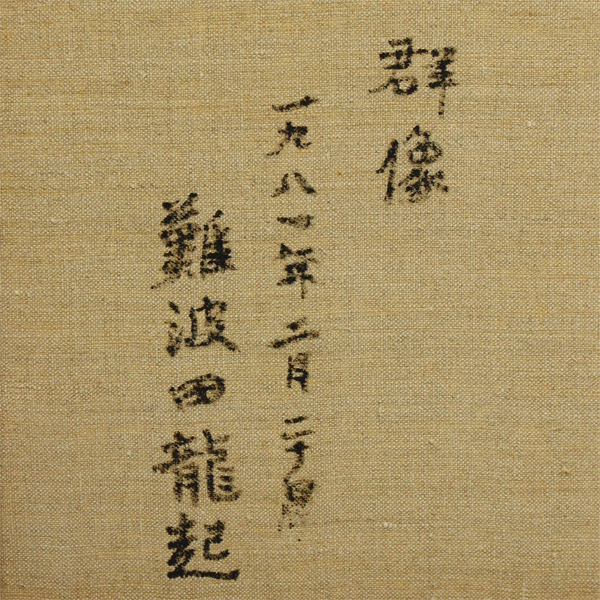 群像
一九八一年二月二十日
難波田龍起